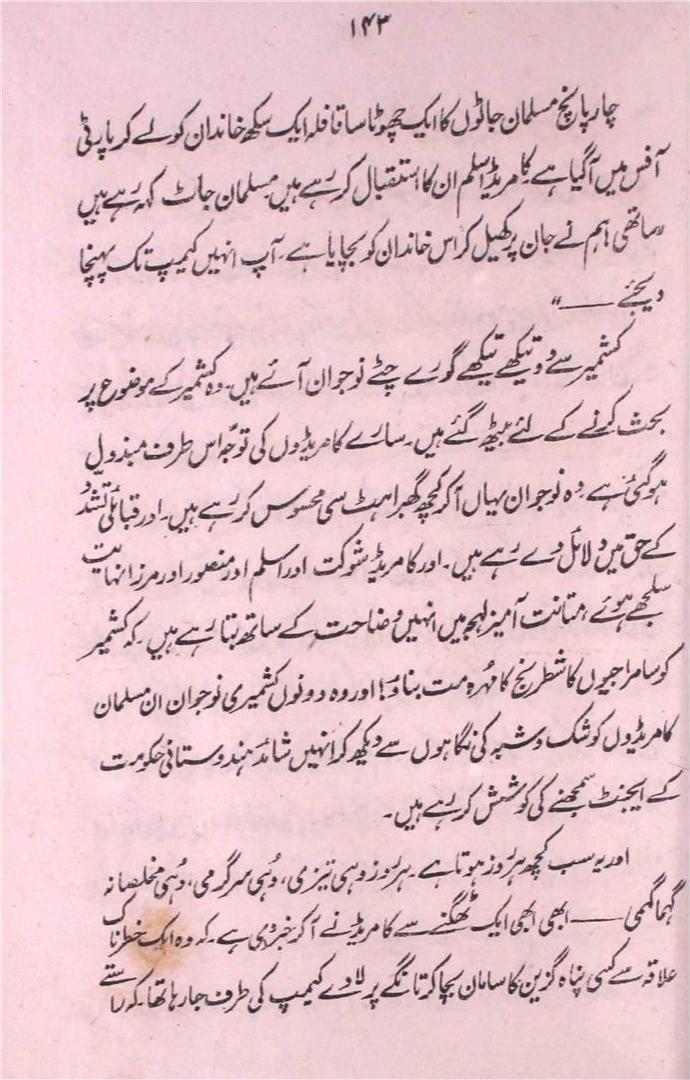 ۱۴۳
چار پانچ مسلمان جاٹوں کا ایک چھوٹا سا قافلہ ایک سکھ خاندان کو لے کر پارٹی
آفس میں آگیا ہے۔ کامریڈ اسلم ان کا استقبال کر رہے ہیں۔ مسلمان جاٹ کہہ رہے ہیں
"ساتھی ہم نے جان پر کھیل کر اس خاندان کو بچایا ہے۔ آپ انہیں کیمپ تک پہنچا
دیجئے ——"
کشمیر سے دو تیکھے تیکھے گورے چٹے نوجوان آئے ہیں۔ وہ کشمیر کے موضوع پر
بحث کرنے کے لئے بیٹھ گئے ہیں۔ سارے کامریڈوں کی توجّہ اس طرف مبذول
ہوگئی ہے۔ وہ نوجوان یہاں آکر کچھ گھبراہٹ سی محسوس کر رہے ہیں۔ اور قبائلی تشدّد
کے حق میں دلائل دے رہے ہیں۔ اور کامریڈ شوکت اور اسلم اور منصور اور مرزا نہایت
سلجھے ہوئے، متانت آمیز لہجہ میں انہیں وضاحت کے ساتھ بتا رہے ہیں۔ کہ کشمیر
کو سامراجیوں کا شطرنج کا مُہرہ مت بناؤ! اور وہ دونوں کشمیری نوجوان ان مسلمان
کامریڈوں کو شک و شبہ کی نگاہوں سے دیکھ کر انہیں شائد ہندوستانی حکومت
کے ایجنٹ سمجھنے کی کوشش کر رہے ہیں۔
اور یہ سب کچھ ہر روز ہوتا ہے۔ ہر روز وہی تیزی، وُہی سرگرمی، وُہی مخلصانہ
گہما گہمی —— ابھی ابھی ایک ٹھگنے سے کامریڈ نے آکر خبر دی ہے۔ کہ وہ ایک خطرناک
علاقہ سے کسی پناہ گزین کا سامان بچا کر تانگے پر لادے کیمپ کی طرف جا رہا تھا۔ کہ راستے